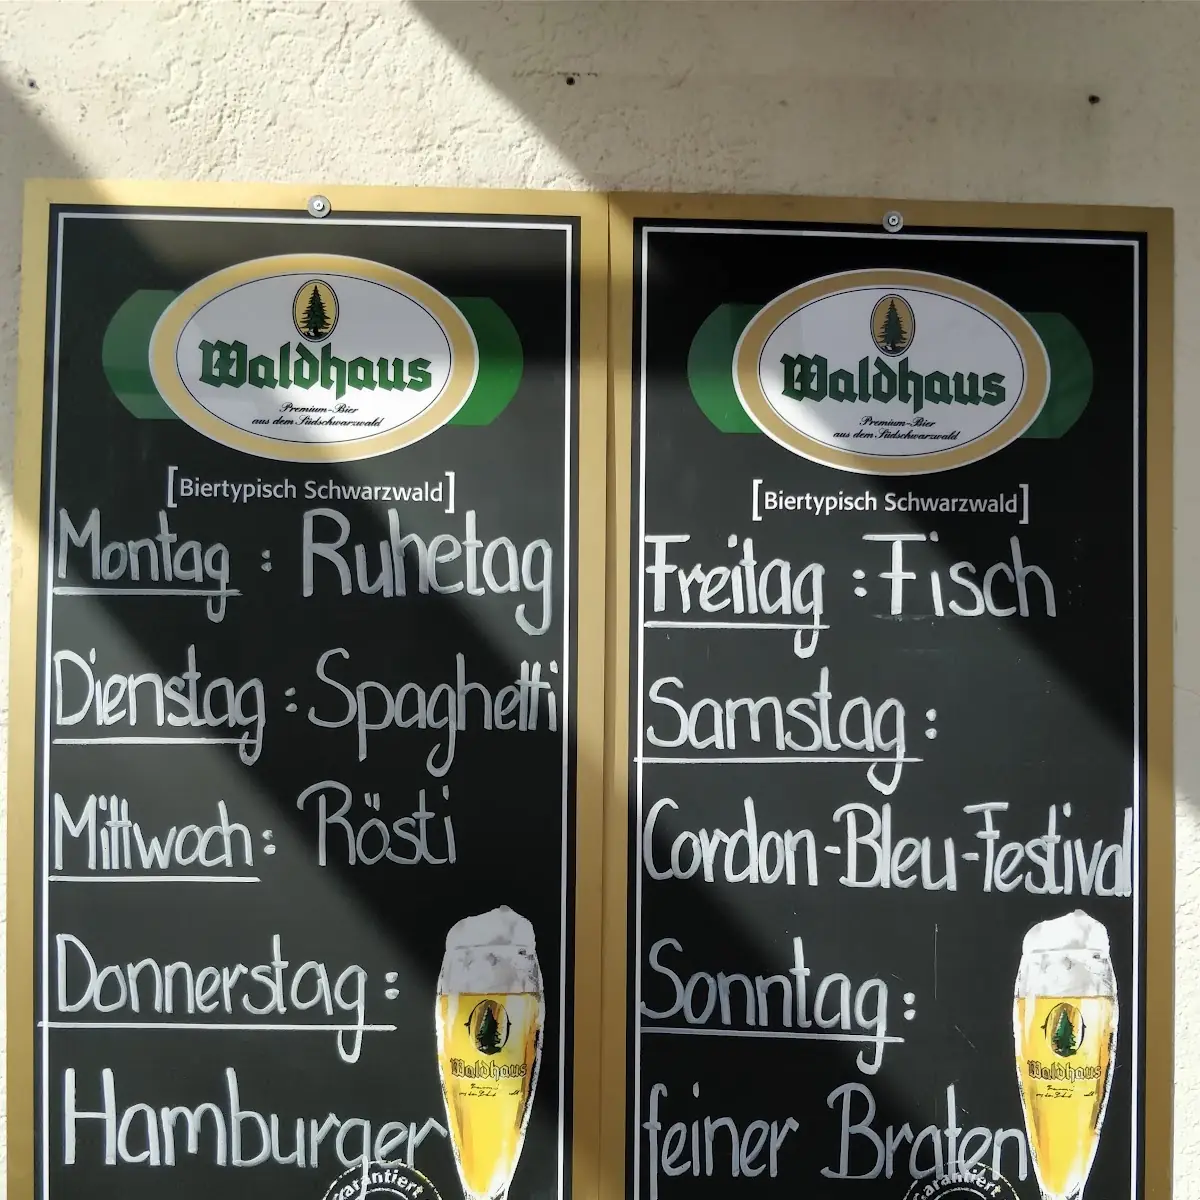 Waldhaus
Premium-Bier
aus dem Südschwarzwald
[Biertypisch Schwarzwald]
Montag : Ruhetag
Dienstag : Spaghetti
Mittwoch : Rösti
Donnerstag :
Hamburger
Waldhaus
garantiert
Waldhaus
Premium-Bier
aus dem Südschwarzwald
[Biertypisch Schwarzwald]
Freitag : Fisch
Samstag :
Cordon-Bleu-Festival
Sonntag :
feiner Braten
Waldhaus
garantiert